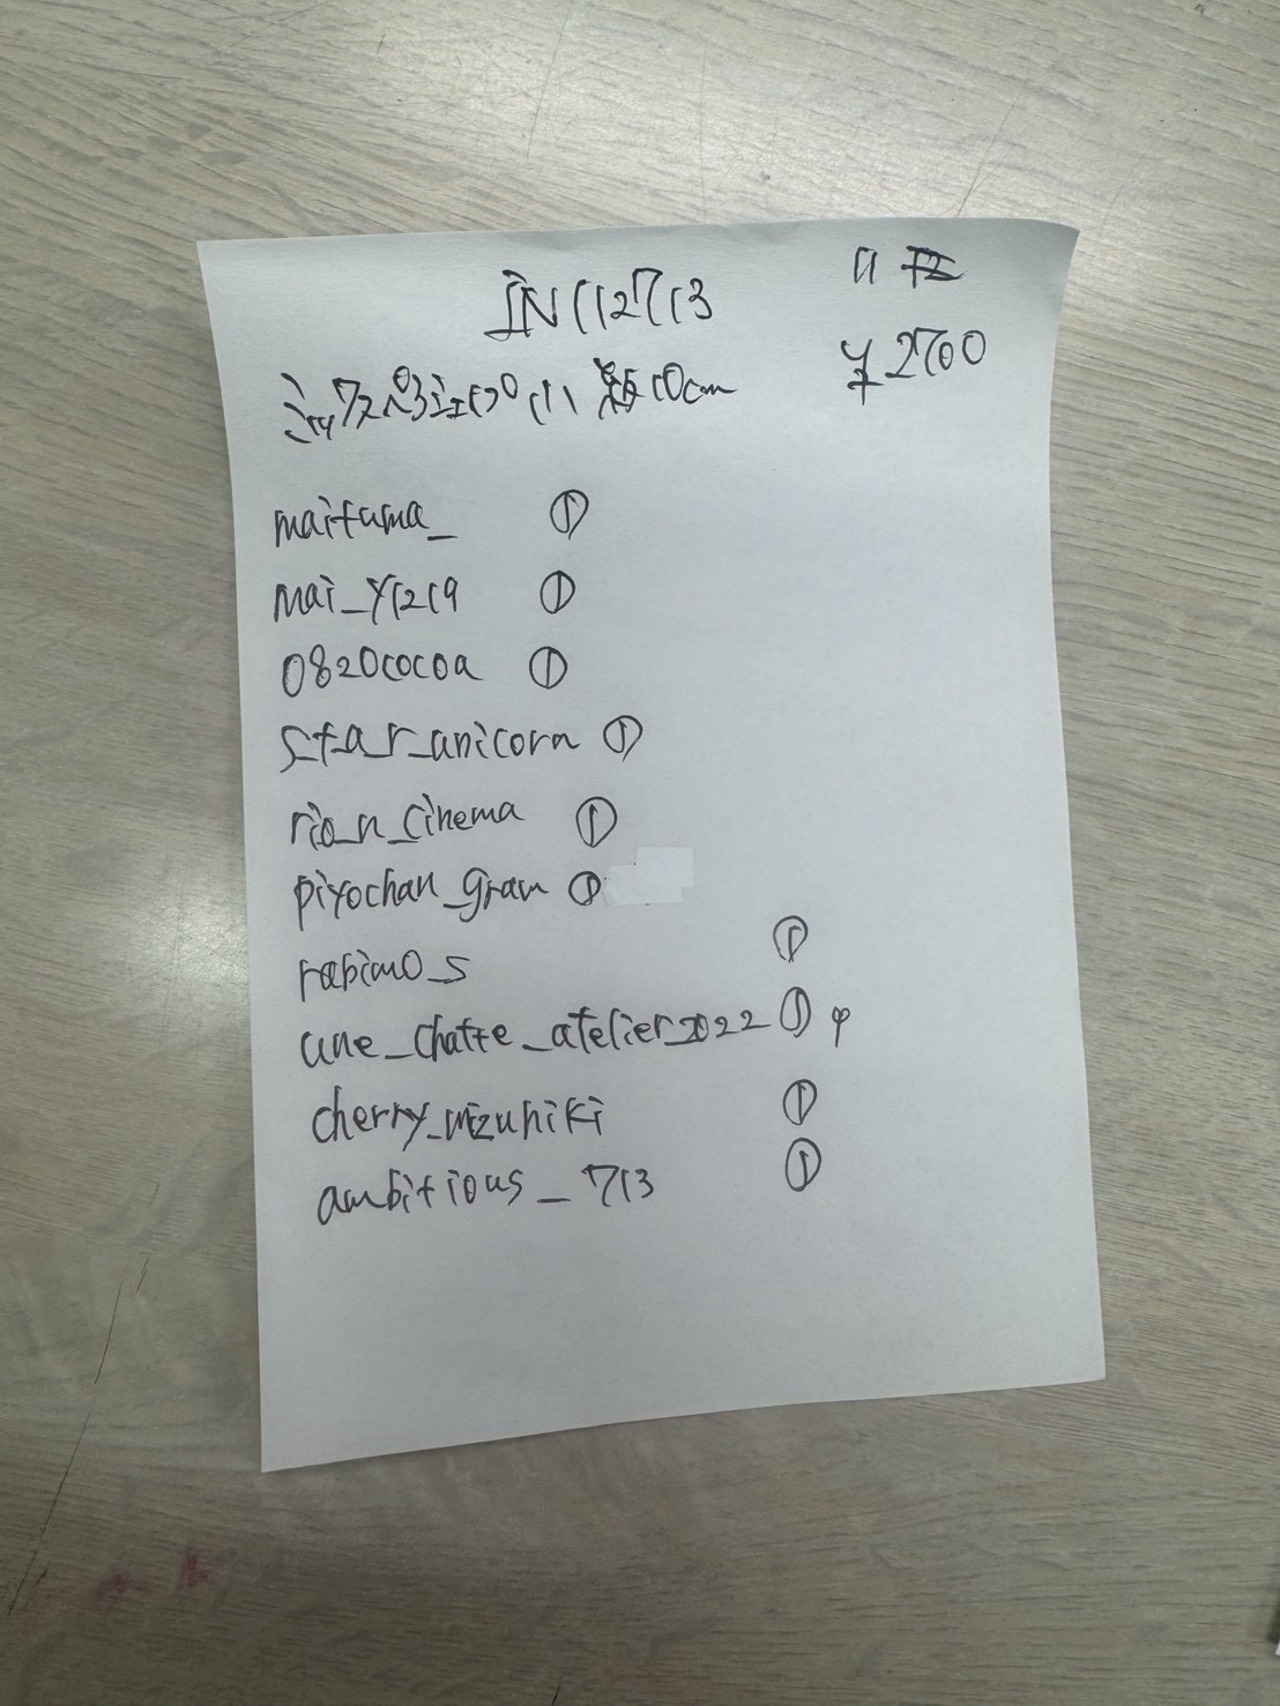 IN112713
¥2700
10cm
maituma_ ①
mai_y1219 ①
0820cocoa ①
s_t_a_r_unicorn ①
rio_n_cinema ①
piyochan_gram ①
rabimo_s ①
une_chatte_atelier_2022 ①
cherry_mizuhiki ①
ambitious_713 ①